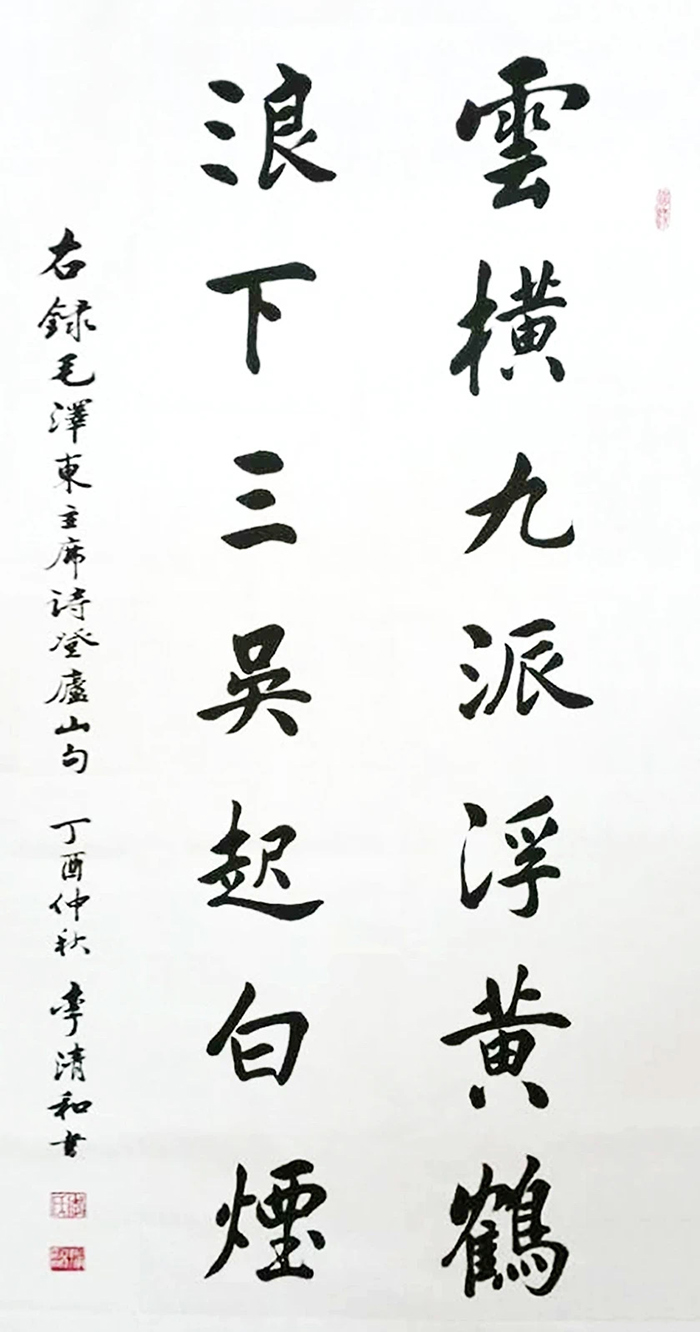 雲橫九派浮黃鶴
浪下三吳起白煙
右録毛澤東主席詩登廬山句 丁酉仲秋 李清和書